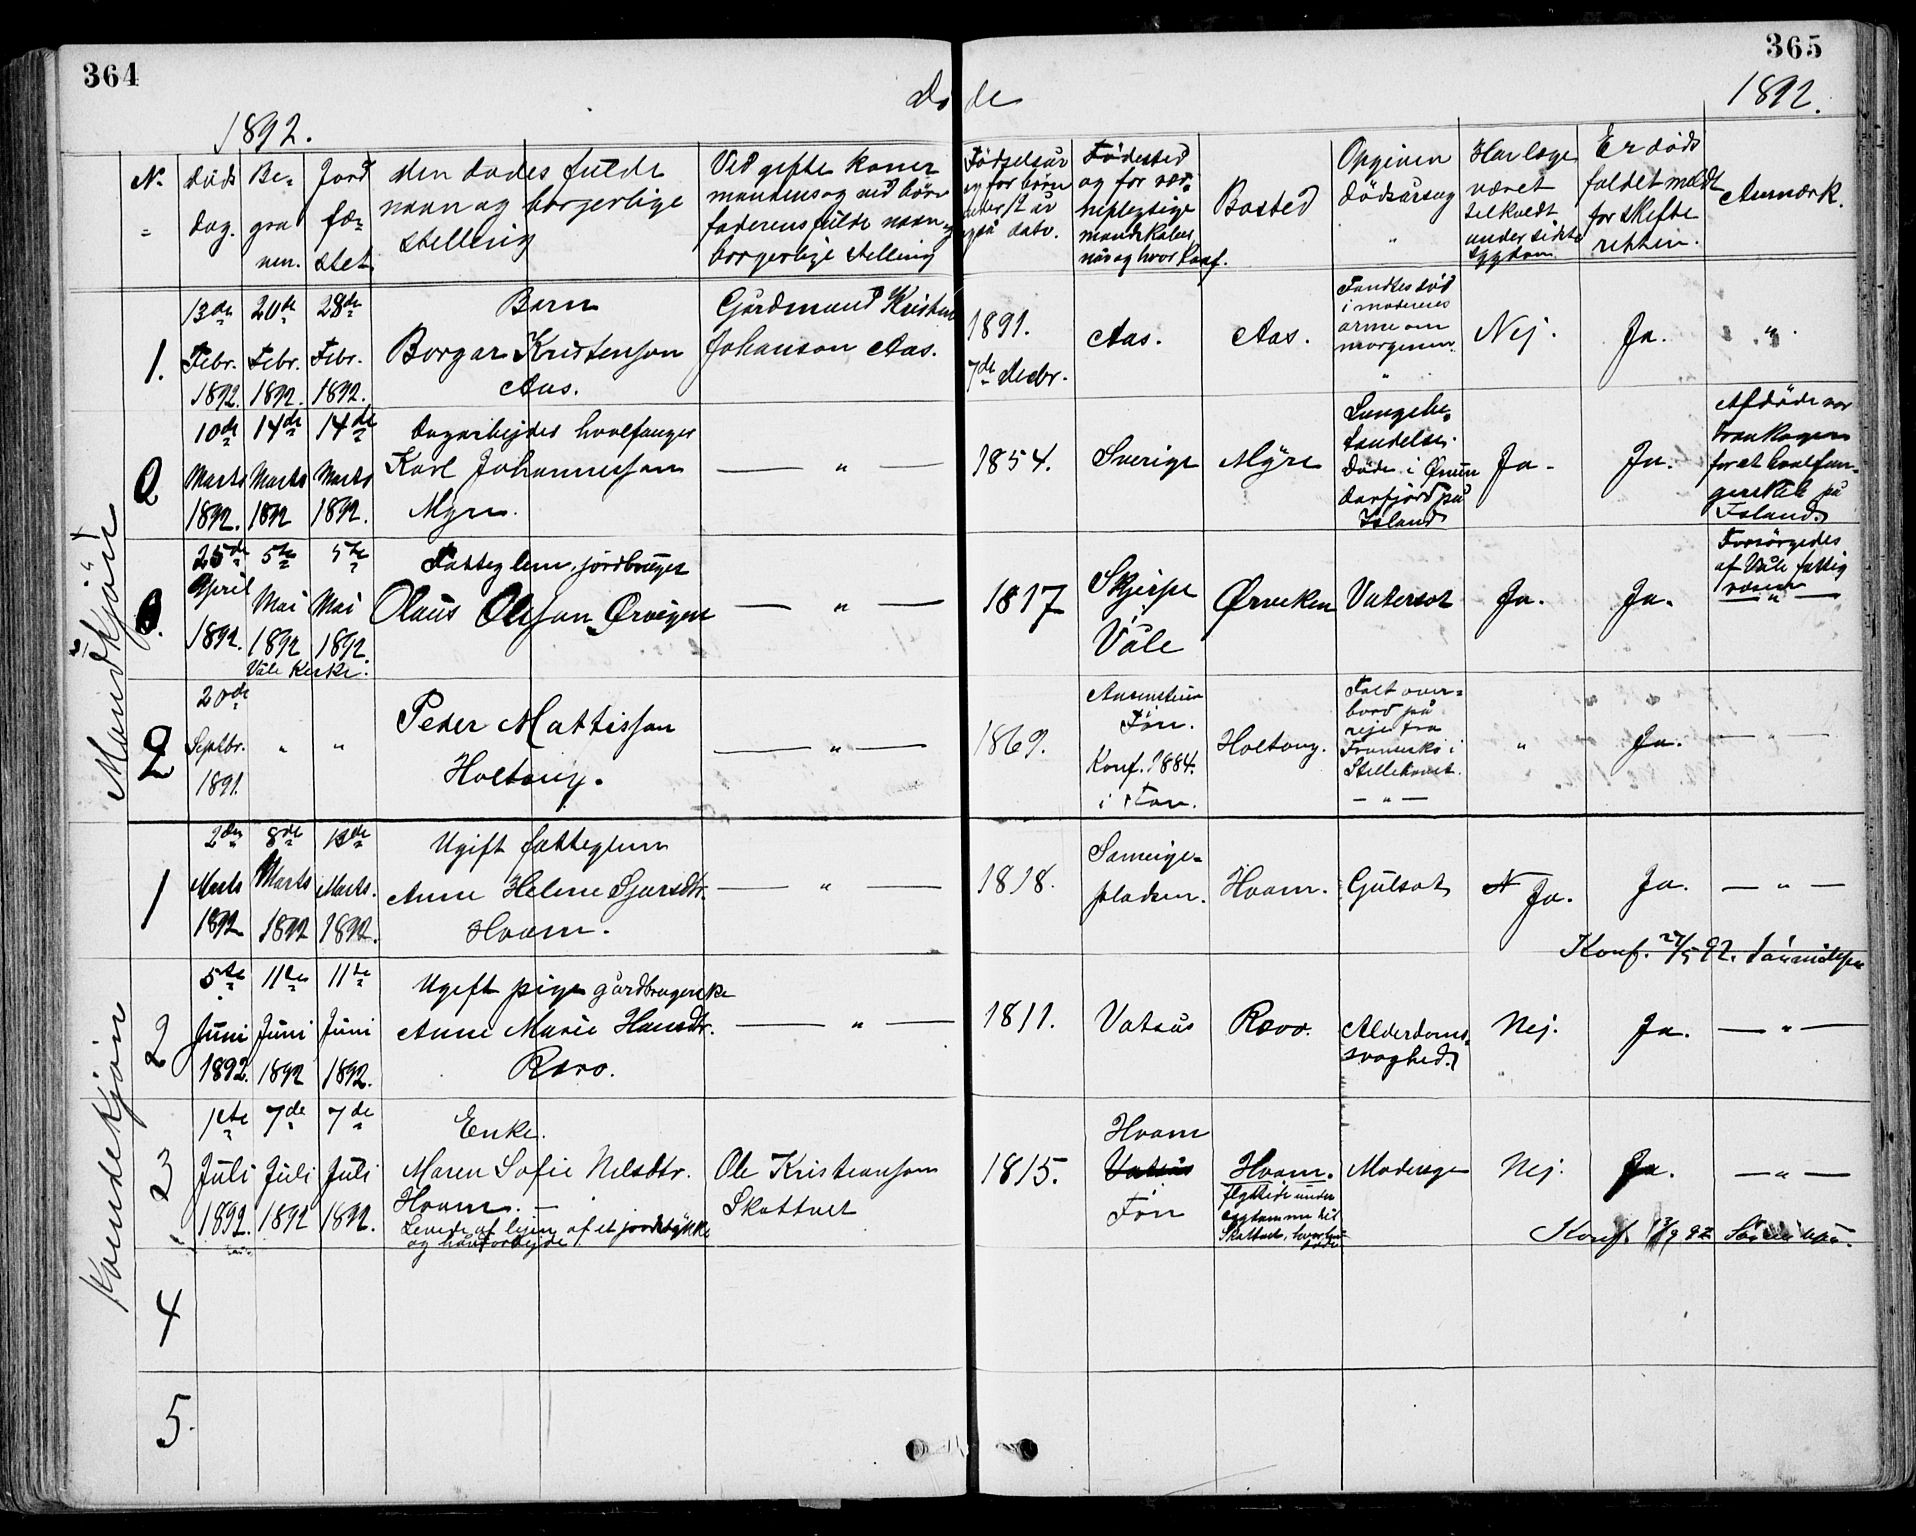 364
365
Døde
1892.
1892.
N.
Døds dag.
Be= gra ven.
Jord fæ= stet
Den dødes fulde navn og borgerlige stilling
Ved gifte koner mandens og ved børn faderens fulde navn og borgerlige stilling
Fødselsår og for børn under 12 år også dato.
Fødested og for vær= nepligtige mandskaber når og hvor konf.
Bosted
Opgiven dødsårsag
Har læge været tilkaldt under sidste sygdom
Er døds faldet meldt for skifte retten.
Anmærk.
Mandkjøn
1.
13de Febr. 1892.
20de Febr. 1892.
28de Febr. 1892.
Barn
Borgar Kristenson
Aas.
Gårdmand Kristen
Johanson Aas.
1891.
7de Decbr.
Aas.
Aas.
Fandtes død
i moderens
arme om
morgenen.
Nej.
Ja.
"
2
10de Marts 1892.
14de Marts 1892
14de Marts 1892.
Dagarbejder hvalfanger
Karl Johannesson
Myre.
— " —
1854.
Sverige
Myre
Lungebe=
tændelse.
Døde i Ønun
darfjord på
Island
Ja.
Ja.
Afdøde var
Trankoger
for et hvalfan-
gerselsk. på
Island
3.
25de April 1892.
5te Mai 1892
5te Mai 1892.
Våle Kirke.
Fatteglem, jordbruger
Olaus Olsson Ørvigen
— " —
1817
Skjerpe
Våle
Ørveken
Vatersot
Ja.
Ja.
Forsørgedes
af Våle fattig
væsen
— " —
20de Septbr. 1891.
"
"
Peder Mattisson
Holtung.
— " —
1869.
Føn.
Konf. 1884.
i Føn.
Holtung.
Falt over=
bord på
reje fra
i
Stillehavet.
— " —
"
Ja.
— " —
Kvindekjøn
1
2den Marts 1892
8de Marts 1892
13de Marts. 1892.
Ugift fatteglem
Anne Helene Sjursdtr.
Hvam.
— " —
1818.
Sameige=
pladsen.
Hvam.
Gulsot
N Ja.
Ja.
— " —
Konf. 27/5 92.
2
5te Juni 1892.
11te Juni 1892
11te Juni 1892.
Ugift pige gårdbrugerske
Anne Marie Hansdtr.
Rævø.
— " —
1811.
Vatsås
Rævø.
Alderdoms=
svaghed
Nej.
Ja.
— " —
3
1ste Juli 1892.
7de Juli 1892
7de Juli 1892.
Enke.
Maren Sofie Nelsdtr.
Hvam. —
Levede af lejen af et jordstykke
og håndarbejde
Ole Kristianson
Skattvet
1815.
Hvam
Vatsås
Føn
Hvam.
flyttede under
sygdommen til
Skattvet, hvor hun
døde
Modersyge
Nej.
Ja.
— " —
Konf. 13/9 92
4
5.